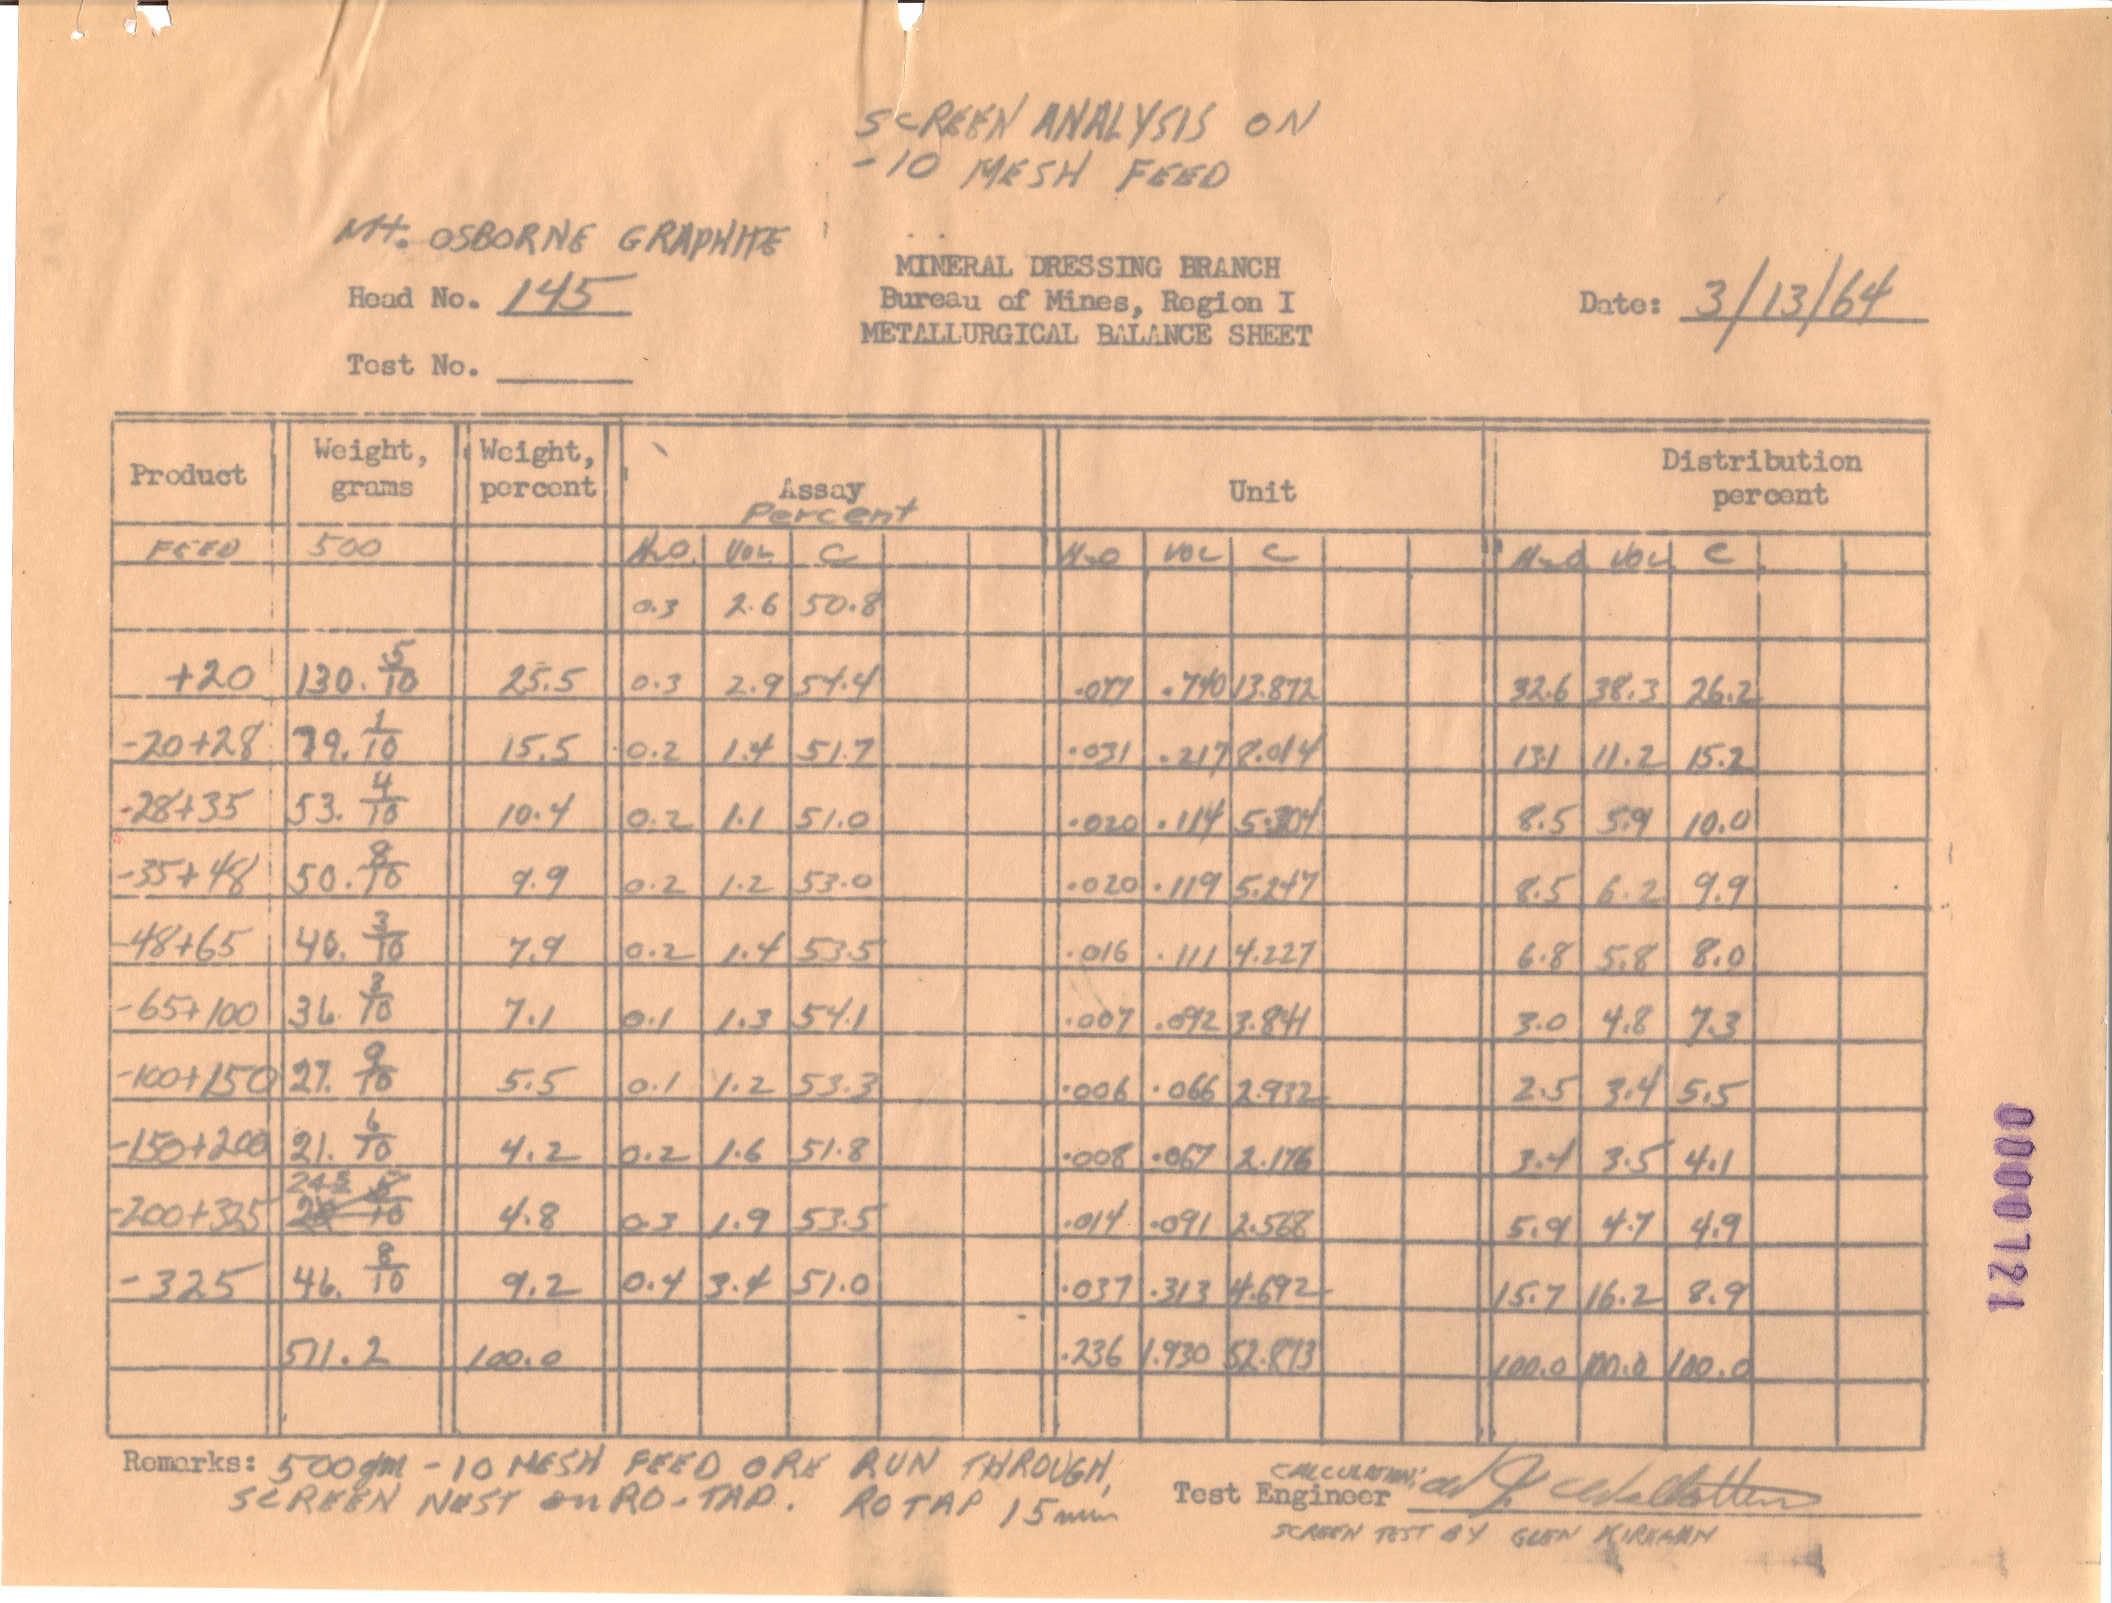 SCREEN ANALYSIS ON
-10 MESH FEED
Mt. OSBORNE GRAPHITE
MINERAL DRESSING BRANCH
Head No. 145
Bureau of Mines, Region I
Date: 3/13/64
METALLURGICAL BALANCE SHEET
Test No.
Product Weight, grams Weight, percent Assay Percent Unit Distribution percent
FEED 500 H2O VOL C H2O VOL C H2O VOL C
0.3 2.6 50.8
+20 130. 5/10 25.5 0.3 2.9 54.4 .077 .740 13.872 32.6 38.3 26.2
-20+28 79. 1/10 15.5 0.2 1.4 51.7 .031 .217 8.014 13.1 11.2 15.2
-28+35 53. 4/10 10.4 0.2 1.1 51.0 .020 .114 5.304 8.5 5.9 10.0
-35+48 50. 8/10 9.9 0.2 1.2 53.0 .020 .119 5.247 8.5 6.2 9.9
-48+65 40. 3/10 7.9 0.2 1.4 53.5 .016 .111 4.227 6.8 5.8 8.0
-65+100 36. 3/10 7.1 0.1 1.3 54.1 .007 .092 3.841 3.0 4.8 7.3
-100+150 27. 9/10 5.5 0.1 1.2 53.3 .006 .066 2.932 2.5 3.4 5.5
-150+200 21. 6/10 4.2 0.2 1.6 51.8 .008 .067 2.176 3.4 3.5 4.1
-200+325 24.5 4.8 0.3 1.9 53.5 .014 .091 2.568 5.9 4.7 4.9
-325 46. 8/10 9.2 0.4 3.4 51.0 .037 .313 4.692 15.7 16.2 8.9
511.2 100.0 .236 1.930 52.873 100.0 100.0 100.0
Remarks: 500gm -10 MESH FEED ORE RUN THROUGH,
SCREEN NEST on RO-TAP. ROTAP 15 min
CALCULATION:
Test Engineer
SCREEN TEST BY GLEN
0000721